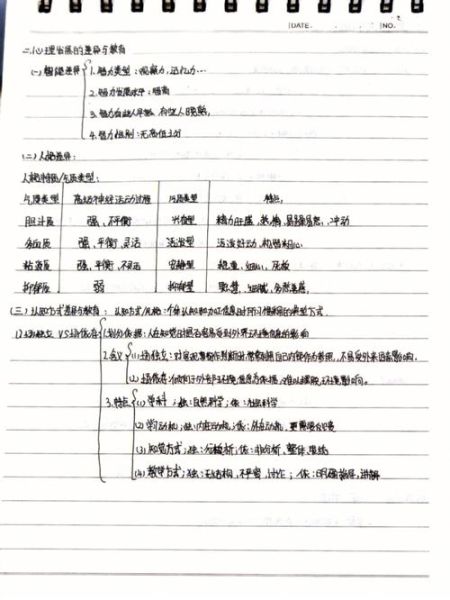 DATE. NO.
二、心理发展的差异与教育
(一) 智能差异 1. 智力类型：观察力、记忆力…
2. 智力发展水平：超常
3. 智力表现早晚：
4. 智力性别：无高低之分
(二) 人格差异：
人格特质/气质类型：
气质类型 高级神经活动过程 气质类型 特点
胆汁质 强、不平衡 兴奋型 精力旺盛、易怒、冲动
多血质 强、平衡、灵活 活泼型 活泼好动、粗心
粘液质 强、平衡、不灵活 安静型 稳重、细心、死板
抑郁质 弱 抑郁型 敏感、细腻、多愁善感
(三) 认知方式差异与教育：认知方式/风格：个体认知时所习惯采用的典型方式
(1) 场独立 VS 场依存 1. 划分依据：人在知觉时是否易受到外界环境信息的影响
2. 含义 (1) 场独立：对客观事物作判断时常常利用自己内部作为参照，不易受外来因素影响
(2) 场依存：倾向于外部环境信息为依据，难以摆脱环境影响
3. 特征 (1) 学科：独：自然科学；依：社会科学
(2) 学习动机：独：内在动机；依：外在动机
(3) 知觉方式：独：分析；依：非分析、整体、笼统
(4) 教学方式：独：无结构、不严密、讨论；依：明确指导、讲解